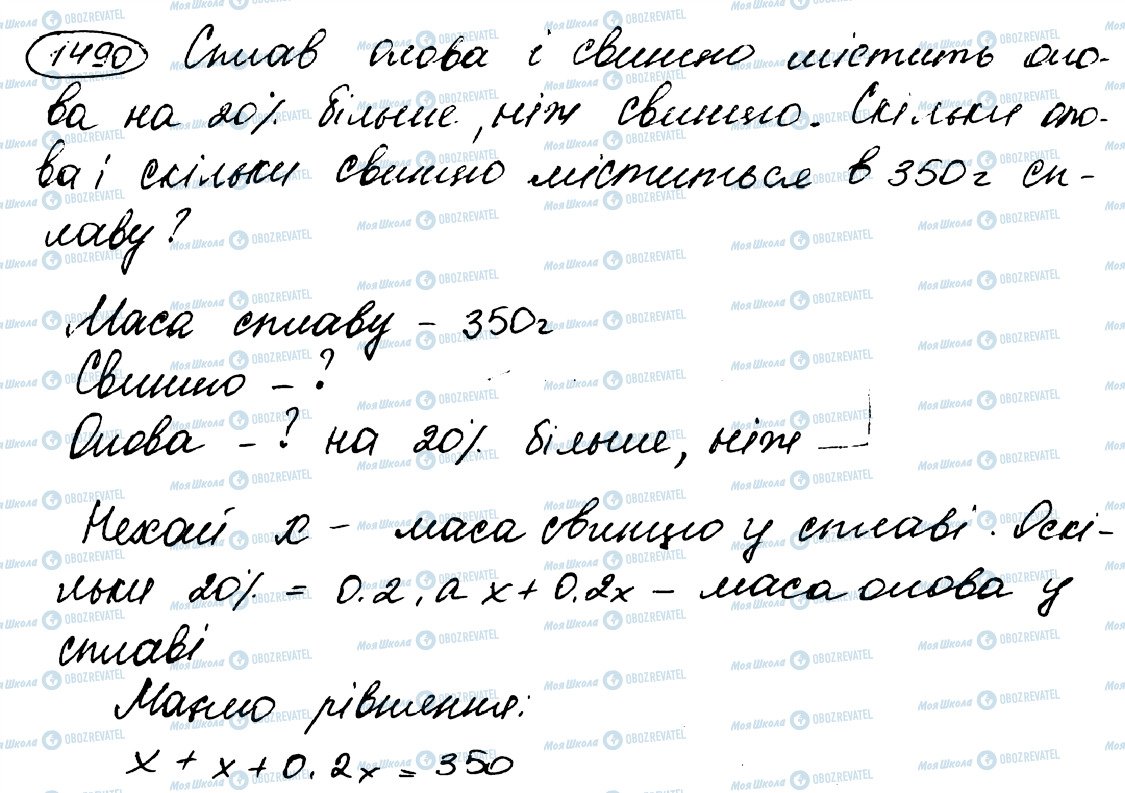 1490 Сплав олова і свинцю містить оло-
ва на 20% більше, ніж свинцю. Скільки оло-
ва і скільки свинцю міститься в 350г сп-
лаву?
Маса сплаву – 350г
Свинцю – ?
Олова – ? на 20% більше, ніж
Нехай x – маса свинцю у сплаві. Оскі-
льки 20% = 0.2, а x + 0.2x – маса олова у
сплаві
Маємо рівняння:
x + x + 0.2x = 350